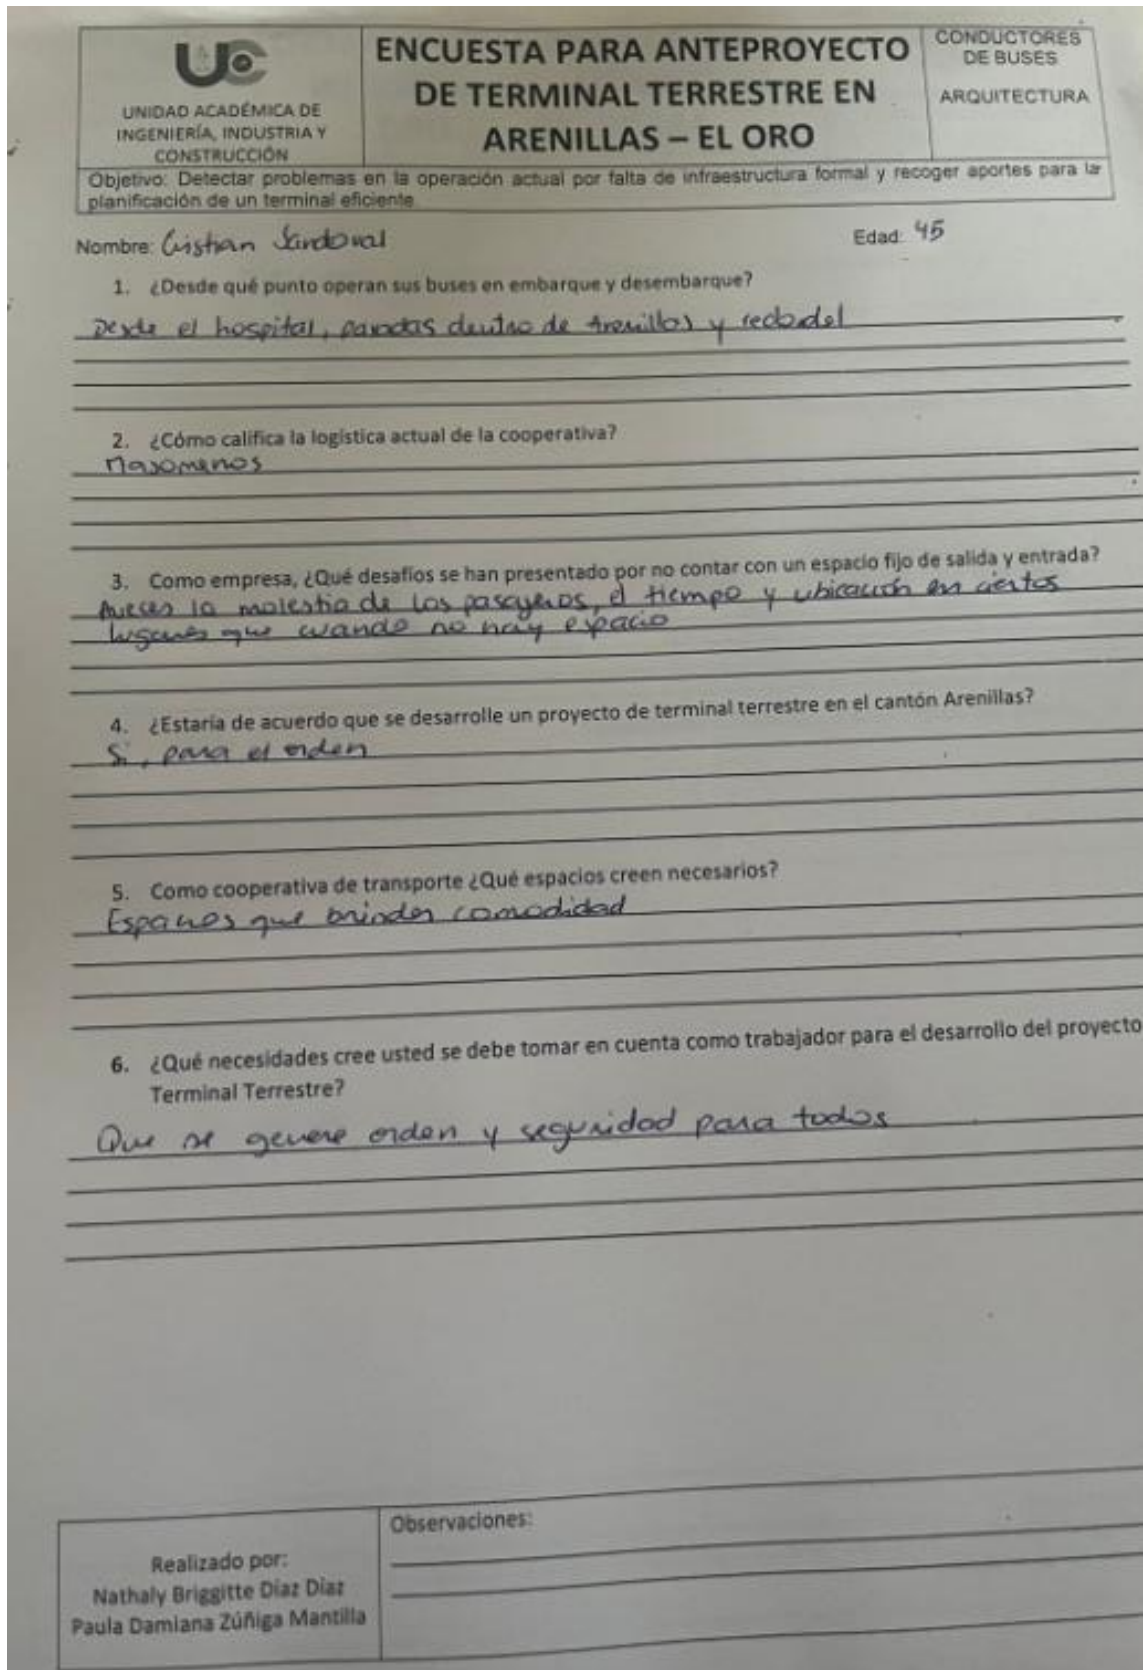 UC
UNIDAD ACADÉMICA DE
INGENIERÍA, INDUSTRIA Y
CONSTRUCCIÓN
ENCUESTA PARA ANTEPROYECTO
DE TERMINAL TERRESTRE EN
ARENILLAS – EL ORO
CONDUCTORES
DE BUSES
ARQUITECTURA
Objetivo: Detectar problemas en la operación actual por falta de infraestructura formal y recoger aportes para la
planificación de un terminal eficiente.
Nombre: Cristian Sandoval Edad: 45
1. ¿Desde qué punto operan sus buses en embarque y desembarque?
Desde el hospital, paradas dentro de Arenillas y
2. ¿Cómo califica la logística actual de la cooperativa?
Masomenos
3. Como empresa, ¿Qué desafíos se han presentado por no contar con un espacio fijo de salida y entrada?
Aveces la molestia de los pasajeros, el tiempo y ubicación en ciertos
lugares que cuando no hay espacio
4. ¿Estaría de acuerdo que se desarrolle un proyecto de terminal terrestre en el cantón Arenillas?
Si, para el orden
5. Como cooperativa de transporte ¿Qué espacios creen necesarios?
Espacios que brinden comodidad
6. ¿Qué necesidades cree usted se debe tomar en cuenta como trabajador para el desarrollo del proyecto
Terminal Terrestre?
Que se genere orden y seguridad para todos
Realizado por:
Nathaly Briggitte Díaz Díaz
Paula Damiana Zúñiga Mantilla
Observaciones: